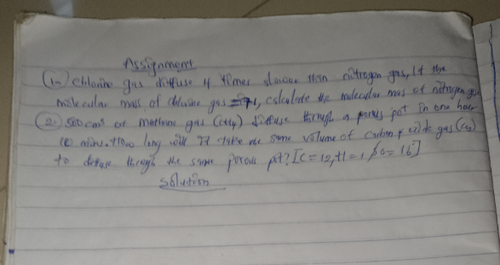 Assignment
(1a) Chlorine gas diffuse 4 times slower than nitrogen gas, If the
molecular mass of chlorine gas = 71, calculate the molecular mass of nitrogen gas
(2) 500cm³ of methane gas (CH4) diffuse through a porous pot in one hour
10 mins. How long will it take the same volume of gas
to diffuse through the same porous pot? [C = 12, H = 1, O = 16]
Solution